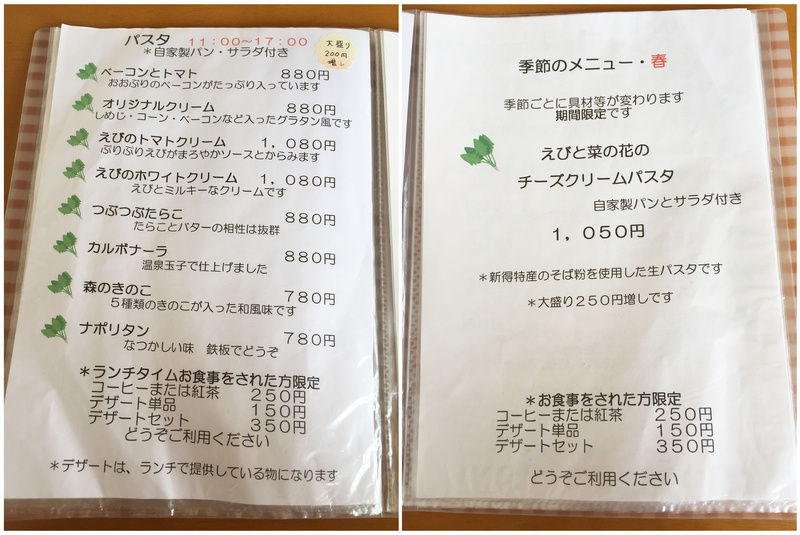 パスタ　１１：００～１７：００
＊自家製パン・サラダ付き
大盛り
２００円
増し
ベーコンとトマト　８８０円
おおぶりのベーコンがたっぷり入っています
オリジナルクリーム　８８０円
しめじ・コーン・ベーコンなど入ったグラタン風です
えびのトマトクリーム　１，０８０円
ぷりぷりえびがまろやかソースとからみます
えびのホワイトクリーム　１，０８０円
えびとミルキーなクリームです
つぶつぶたらこ　８８０円
たらことバターの相性は抜群
カルボナーラ　８８０円
温泉玉子で仕上げました
森のきのこ　７８０円
５種類のきのこが入った和風味です
ナポリタン　７８０円
なつかしい味　鉄板でどうぞ
＊ランチタイムお食事をされた方限定
コーヒーまたは紅茶　２５０円
デザート単品　１５０円
デザートセット　３５０円
どうぞご利用ください
＊デザートは、ランチで提供している物になります
季節のメニュー・春
季節ごとに具材等が変わります
期間限定です
えびと菜の花の
チーズクリームパスタ
自家製パンとサラダ付き
１，０５０円
＊新得特産のそば粉を使用した生パスタです
＊大盛り２５０円増しです
＊お食事をされた方限定
コーヒーまたは紅茶　２５０円
デザート単品　１５０円
デザートセット　３５０円
どうぞご利用ください